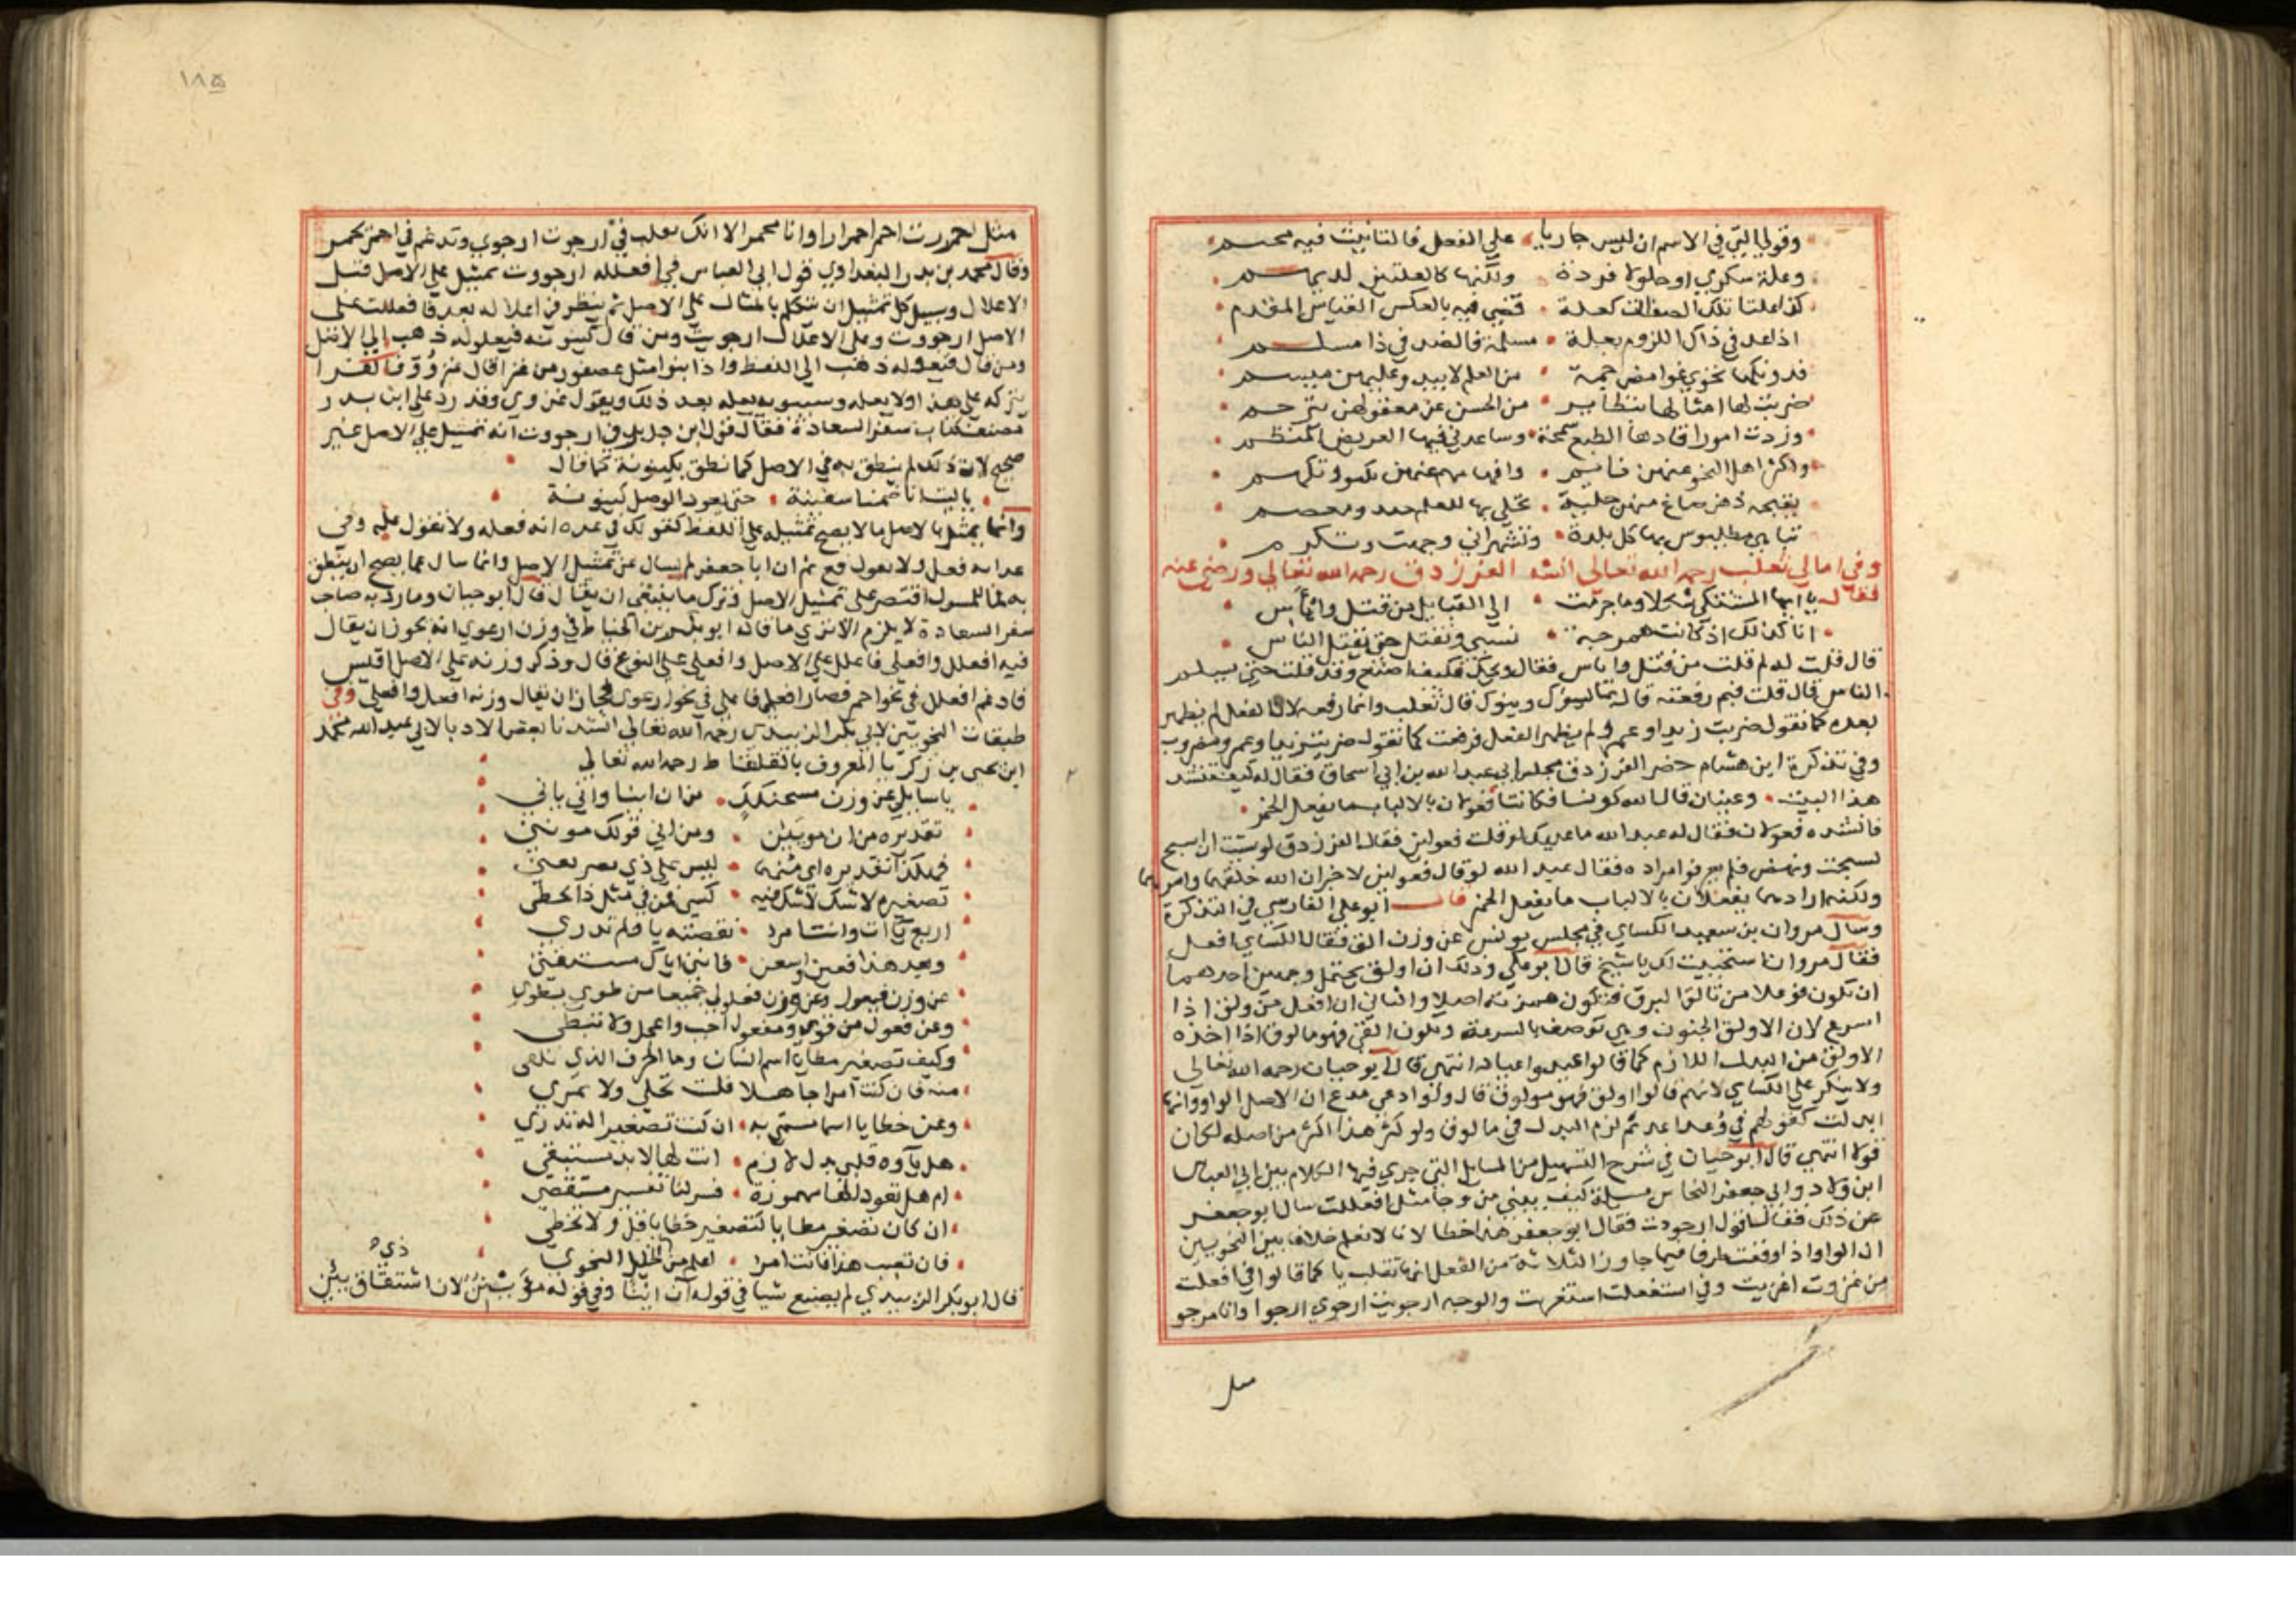 وقولي التي في الاسم ان ليس جاريا على الفعل فالتانيث فيه محتم
وعلة سكري او حلولا فردة ولكنها كالعلتين لديهم
كذا علتا تلك الصفات كعلة قضي فيه بالعكس القياس المقدم
اذا عد في ذاك اللزوم بعلة مسلمة فالضد في ذا مسلم
فدونكها تحوي غوامض جمة من العلم لا يبدو عليهن ميسم
ضربت لها امثالها بنظاير من الحسن عن معقولهن تترجم
وزدت امورا قادها الطبع سمحة وساعدني فيها العريض المنظم
واكثر اهل النحو عنهن نايم وافهامهم عنهن تكبو وتكهم
بقيحه ذهن صاغ منهن حلية تحلي بها للعلم جيد ومعصم
تباهي بطليوس بها كل بلدة وتشهر اني وجهت وتكرم
وفي امالي ثعلب رحمه الله تعالى انشد الفرزدق رحمه الله تعالى ورضي عنه
فقال يا ايها المشتكي شكلا وما جرمت الي القبايل من قتل وابآس
انا كذلك اذ كانت همرجة نسبي ونقتل حتى يقتل الناس
قال قلت له لم قلت من قتل وابآس فقال ويحك فكيف اصنع وقد قلت حتى يسلم
الناس قال قلت فبم رفعته قال بما يسؤك وينوك قال ثعلب وانما رفعه لان الفعل لم يظهر
بعده كما تقول ضربت زيدا وعمرو لم يظهر الفعل فرفعت كما تقول ضربت زيدا وعمرو مضروب
وفي تذكرة ابن هشام حضر الفرزدق مجلس ابي عبد الله بن ابي اسحاق فقال له كيف تنشد
هذا البيت وعينان قال الله كونا فكانتا فعولان بالالباب ما يفعل الخمر
فانشده فعولان فقال له عبد الله ما عليك لو قلت فعولين فقال الفرزدق لو شيت ان اسبح
لسبحت ونهض فلم يعرفوا مراده فقال عبد الله لو قال فعولين لاخبر ان الله خلقهما وامرهما
ولكنه ارادهما يفعلان بالالباب ما يفعل الخمر قال ابو علي الفارسي في التذكرة
وسال مروان بن سعيد الكساي في مجلس يونس عن وزن القى فقال الكساي افعل
فقال مروان استحييت لك يا شيخ قال ابو علي وذلك ان اولق يحتمل وجهين احدهما
ان يكون فوعلا من تالق البرق فتكون همزته اصلا والثاني ان افعل من ولق اذا
اسرع لان الاولق الجنون وهي توصف بالسرعة ويكون القى فهو مالوق اذا اخذه
الاولق من البدل اللازم كما قالوا عيد واعياد انتهى قال ابو حيان رحمه الله تعالى
ولا ينكر على الكساي لانهم قالوا اولق فهو مولوق قال ولو ادعي مدع ان الاصل الواو وانها
ابدلت كقولهم في وعد اعد ثم لزم البدل في مالوق ولو كثر هذا اكثر من اصله لكان
قولا انتهى قال ابو حيان في شرح التسهيل من المسايل التي جري فيها الكلام بين ابي العباس
ابن ولاد وابي جعفر النحاس مسيلة كيف يبني من رجا مثل افعللت سال ابو جعفر
عن ذلك فقال اقول ارجووت فقال ابو جعفر هذا خطا لانا لا نعلم خلافا بين النحويين
ان الواو اذا وقعت طرفا فيما جاوز الثلاثة من الفعل انها تقلب يا كما قالوا في افعلت
من غزوت اغزيت وفي استفعلت استغزيت والوجه ارجويت ارجوي ارجوا وانا مرجو
مثل
١٨٥
مثل احمررت احمر احمرارا وانا محمر الا انك تقلب في ارجوت ارجوي وتدغم في احمر محمر
وقال محمد بن بدر البغدادي قول ابي العباس في افعلله ارجووت تمثيل على الاصل قبل
الاعلال وسبيل كل تمثيل ان تتكلم بالمثال على الاصل ثم ينظر في اعلاله بعد فافعللت على
الاصل ارجووت وعلى الاعلال ارجويت ومن قال كينونة فيعلولة ذهب الى الاصل
ومن قال فيعولة ذهب الى اللفظ واذا بنوا مثل عصفور من غزا قال غزووّ فالفرا
يتركه على هذا ولا يعله وسيبويه يعله بعد ذلك ويقول غزوي وقد رد على ابن بدر
مصنف كتاب سفر السعادة فقال قول ابن بدر في ارجووت انه تمثيل على الاصل غير
صحيح لان ذلك لم ينطق به في الاصل كما نطق بكينونة كما قال
ياليت انا ضمنا سفينة حتى يعود الوصل كينونة
وانما يمثل بالاصل ما لا يصح تمثيله على اللفظ كقولك في عدة انه فعلة ولا نقول علة وفي
عدانه فعل ولا نقول فع ثم ان ابا جعفر لم يسال عن تمثيل الاصل وانما سال عما يصح ان ينطق
به فالمسول اقتصر على تمثيل الاصل وترك ما ينبغي ان يقال قال ابو حيان وما رد به صاحب
سفر السعادة لا يلزم الا تري ما قاله ابو بكر بن الخياط في وزن ارعوي انه يجوز ان يقال
فيه افعلل وافعلي فاعلل على الاصل وافعلي على الفرع قال وذكر وزنه على الاصل اقيس
فادغم افعلل في نحو احمر فصار افعل فاعلي في نحو ارعوي فجاز ان يقال وزنه افعل وافعلي وفي
طبقات النحويين لابي بكر الزبيدي رحمه الله تعالى انشدنا بعض الادبا لابي عبد الله محمد
ابن يحيى بن زكريا المعروف بالقلفاط رحمه الله تعالى
يا سايلي عن وزن مسحنكك من ان اينا واني ياني
تقديره من ان مويين ومن اني قولك مويني
فهكذا تقديره اي مثمها ليس على ذي بصر يعني
تصغيره لا شك لا شك فيه كيين في مثل ذا يخطي
اربع يآآت وانت امرؤ نقصته يا فلم تدري
وبعد هذا فعن واسعن فانني اياك مستفتي
عن وزن فيعول وعن وزن فعلول جميعا من طوي يطوي
وعن فعول من قوي ومفعول اجب واعجل ولا تبطي
وكيف تصغير مطايا اسم انسان وما الحرف الذي تلغي
منه فان كنت امرا جاهلا قلت تحلي ولا تمري
وعن خطايا اسما مسمي به ان كنت تصغيرا له تدري
هل يآوه قلبي بدل لازم انت لها لا بد تستبقي
ام هل تعود الفا مهموزة فسر لنا تفسير مستقصي
ان كان تصغير مطايا كتصغير خطايا قل ولا تخطي
فان تصب هذا فانت امرا اعلم من الخليل النحوي
ذي
قال ابو بكر الزبيدي لم يصنع شيا في قوله ان اينا وفي قوله مويين لان اشتقاق يبئن